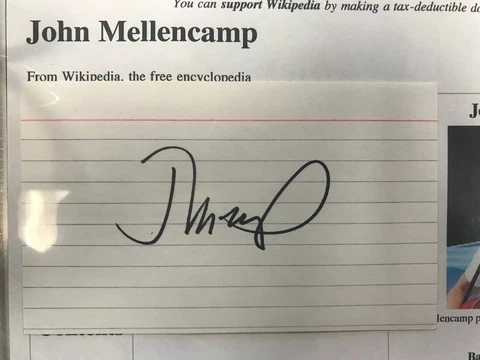 You can support Wikipedia by making a tax-deductible do
John Mellencamp
From Wikipedia, the free encyclopedia
J
lencamp p
Contents
Ba